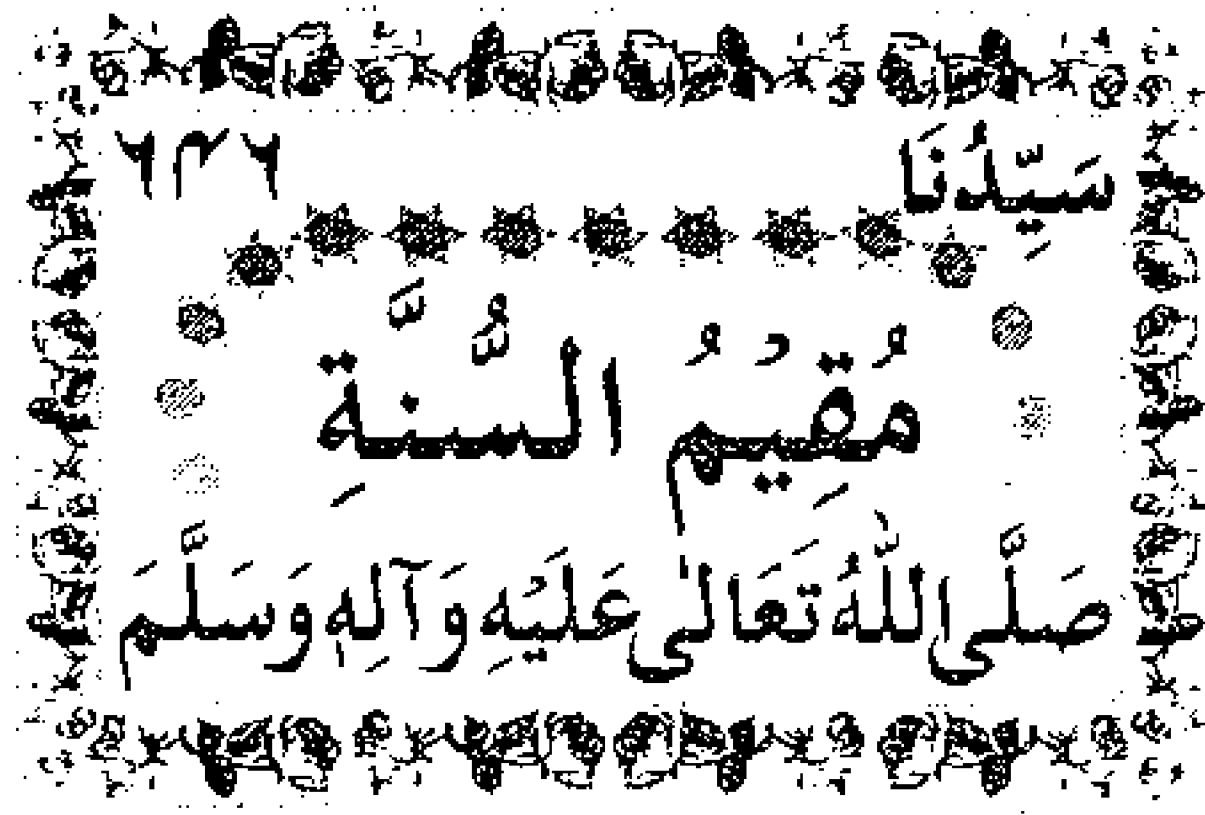 سَيِّدُنَا ٦٣٦
مُقِيْمُ السُّنَّةِ
صَلَّى اللّٰهُ تَعَالٰى عَلَيْهِ وَآلِهِ وَسَلَّمَ